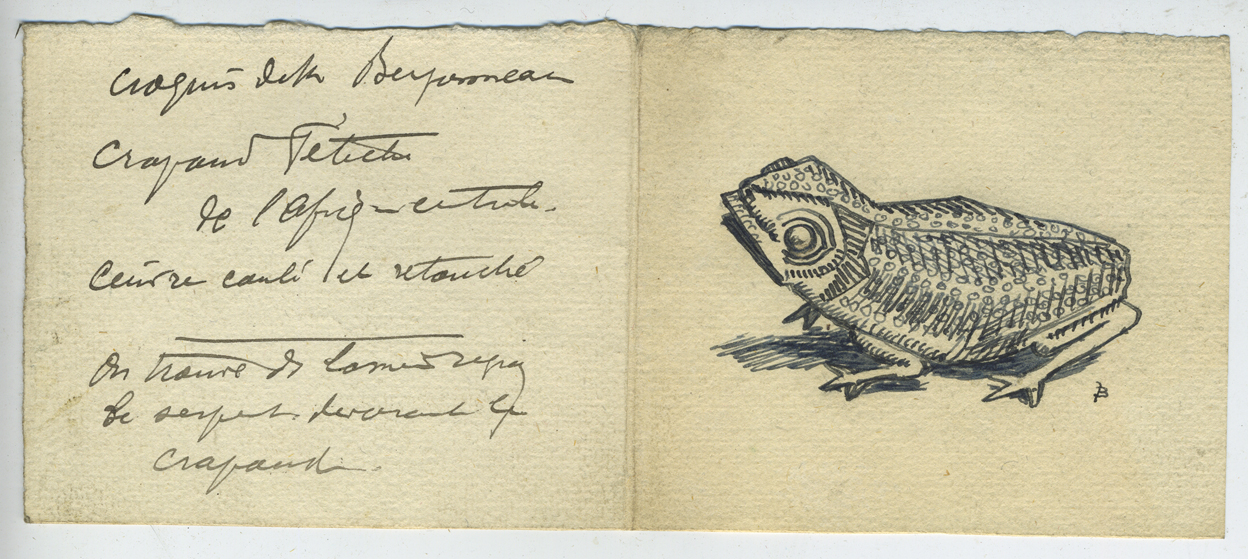 Croquis de Mr Bergonneau
Crapaud Fétiche
de l'Afriq centrale.
Cuivre coulé et retouché
On trouve ds le même
le serpent devorant le
crapaud.
B